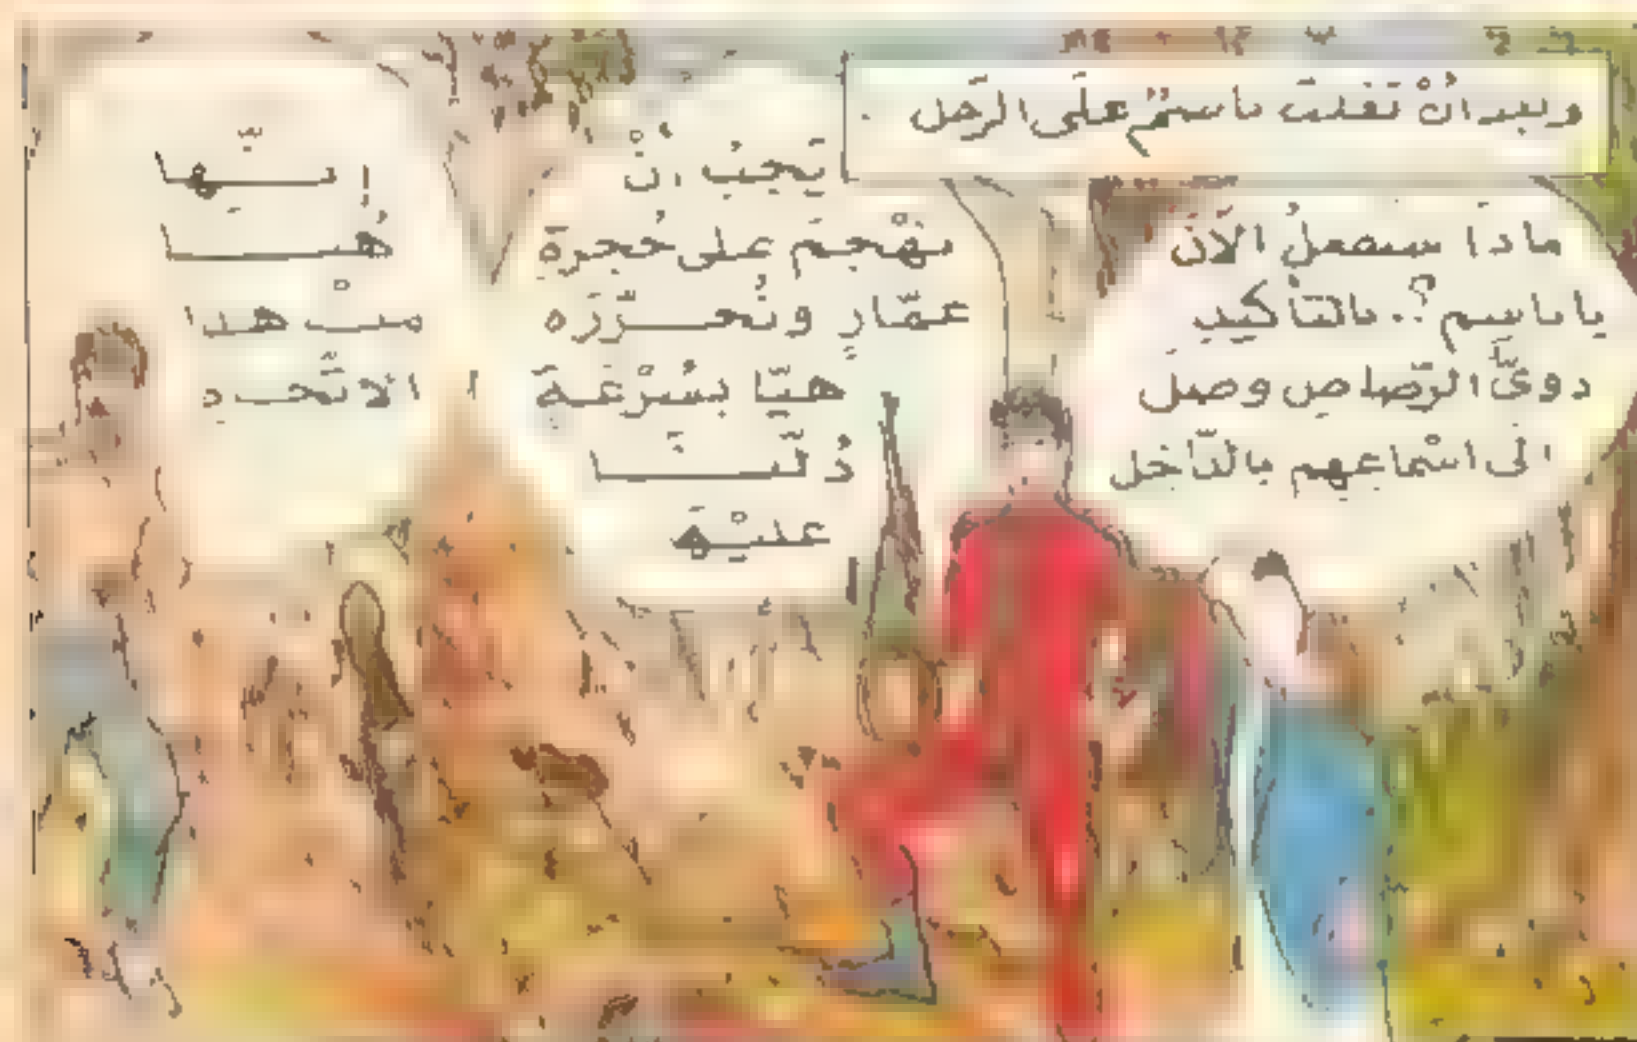 وبعد أنْ تغلبَ باسمٌ على الرّجل .
ماذا سيفعلُ الآنَ
يا باسم ؟.. بالتأكيدِ
دويُّ الرّصاصِ وصلَ
الى اسْماعهم بالدّاخل
يَجبُ أنْ
نهْجمَ على حُجرةِ
عمّارٍ ونُحـــرّرَه
هيّا بسُرْعَـةَ
دُلّنــــا
عليْهَا
إنـــّها
هُنــــا
منْ هذا
الاتّجــاه